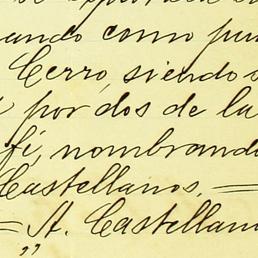 ando como pun
Cerro, siendo
por dos de la
fi, nombrando
Castellanos. —
— A. Castellano
"